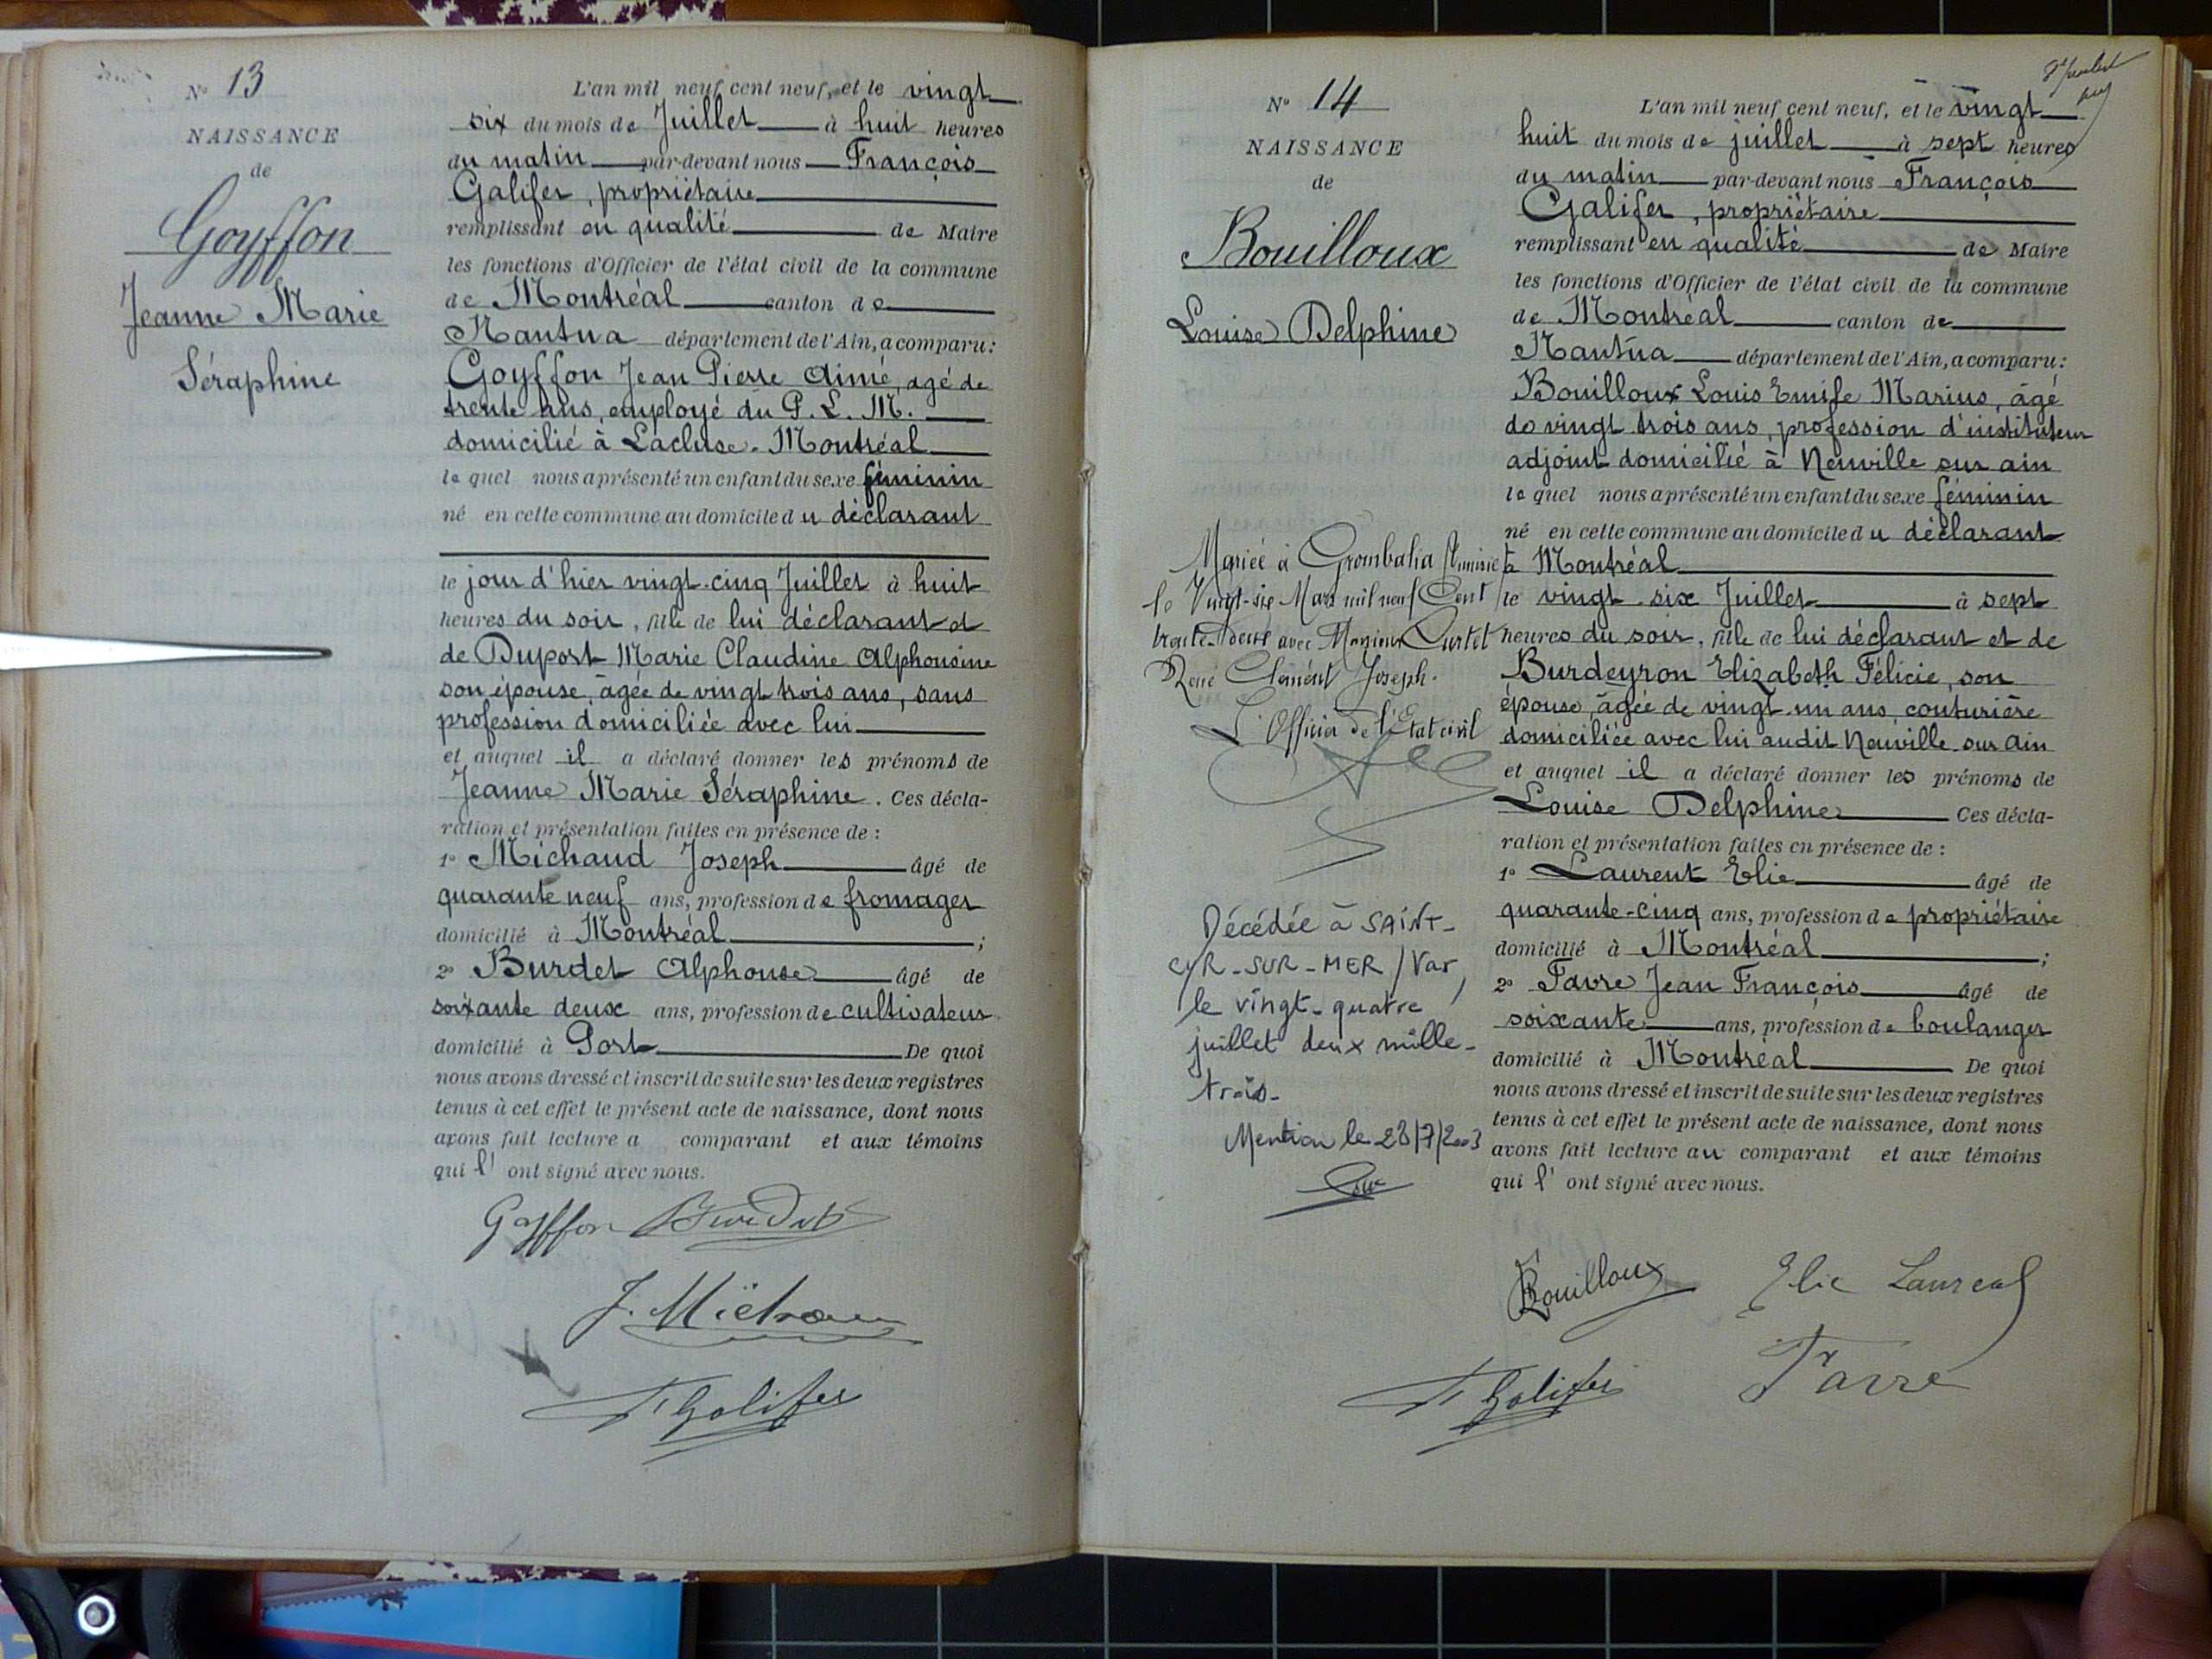 N° 13
NAISSANCE
de
Goyffon
Jeanne Marie
Séraphine
L'an mil neuf cent neuf, et le vingt
six du mois de Juillet à huit heures
du matin par-devant nous François
Galifer, propriétaire
remplissant en qualité de Maire
les fonctions d'Officier de l'état civil de la commune
de Montréal canton de
Nantua département de l'Ain, a comparu:
Goyffon Jean Pierre Aimé, agé de
trente ans, employé du P. L. M.
domicilié à Lacluse. Montréal
le quel nous a présenté un enfant du sexe féminin
né en cette commune au domicile du déclarant
le jour d'hier vingt-cinq Juillet à huit
heures du soir, fille de lui déclarant et
de Duport Marie Claudine Alphonsine
son épouse, âgée de vingt trois ans, sans
profession domiciliée avec lui
et auquel il a déclaré donner les prénoms de
Jeanne Marie Séraphine. Ces décla-
ration et présentation faites en présence de :
1° Michaud Joseph âgé de
quarante neuf ans, profession de fromager
domicilié à Montréal ;
2° Burdet Alphonse âgé de
soixante deux ans, profession de cultivateur
domicilié à Port De quoi
nous avons dressé et inscrit de suite sur les deux registres
tenus à cet effet le présent acte de naissance, dont nous
avons fait lecture a comparant et aux témoins
qui l' ont signé avec nous.
Goyffon Burdet
J. Michaud
F Galifer
N° 14
NAISSANCE
de
Bouilloux
Louise Delphine
Mariée à Grombalia Tunisie
le Vingt-six Mars mil neuf Cent
trente-deux avec Monsieur Curtet
René Clément Joseph.
L'Officier de l'Etat civil
Décédée à SAINT-
CYR-SUR-MER / Var,
le vingt-quatre
juillet deux mille-
trois-
Mention le 28/7/2003
L'an mil neuf cent neuf, et le vingt
huit du mois de juillet à sept heures
du matin par-devant nous François
Galifer, propriétaire
remplissant en qualité de Maire
les fonctions d'Officier de l'état civil de la commune
de Montréal canton de
Nantua département de l'Ain, a comparu:
Bouilloux Louis Emile Marius, âgé
de vingt trois ans, profession d'instituteur
adjoint domicilié à Neuville sur ain
le quel nous a présenté un enfant du sexe féminin
né en cette commune au domicile du déclarant
à Montréal
le vingt six Juillet à sept
heures du soir, fille de lui déclarant et de
Burdeyron Elizabeth Félicie, son
épouse, âgée de vingt un ans, couturière
domiciliée avec lui audit Neuville sur Ain
et auquel il a déclaré donner les prénoms de
Louise Delphine Ces décla-
ration et présentation faites en présence de :
1° Laurent Elie âgé de
quarante-cinq ans, profession de propriétaire
domicilié à Montréal ;
2° Favre Jean François âgé de
soixante ans, profession de boulanger
domicilié à Montréal De quoi
nous avons dressé et inscrit de suite sur les deux registres
tenus à cet effet le présent acte de naissance, dont nous
avons fait lecture au comparant et aux témoins
qui l' ont signé avec nous.
Bouilloux Elie Laurent
F Galifer Favre